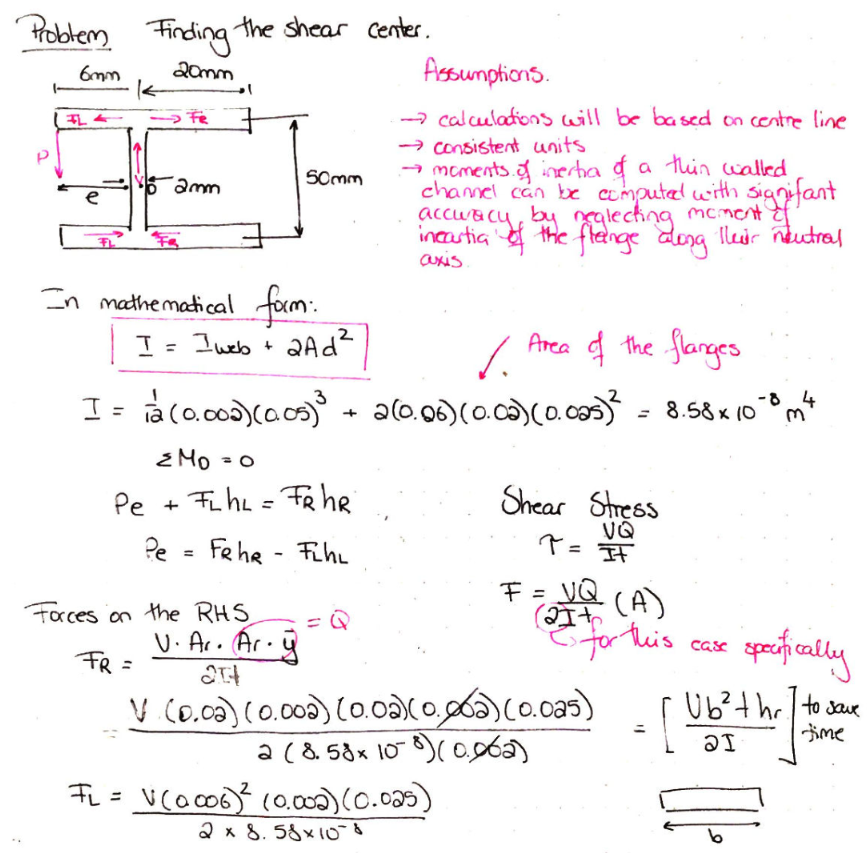 Problem Finding the shear center.
6mm 20mm
FL FR
P
V
e
O
2mm
50mm
FL FR
Assumptions.
→ calculations will be based on centre line
→ consistent units
→ moments of inertia of a thin walled
channel can be computed with signifant
accuracy by neglecting moment of
ineartia of the flange along their neutral
axis.
In mathematical form:.
I = Iweb + 2Ad²
Area of the flanges
I = 1/12 (0.002)(0.05)³ + 2(0.06)(0.02)(0.025)² = 8.58 x 10⁻⁸ m⁴
ΣMo = 0
Pe + FLhL = FRhR
Pe = FRhR - FLhL
Shear Stress
τ = VQ/It
F = VQ/2It (A)
for this case specifically
Forces on the RHS
FR = V · Ar · Ar · ȳ / 2It
= Q
= V (0.02)(0.002)(0.02)(0.002)(0.025) / 2 (8.58x 10⁻⁸)(0.002)
= [ Vb²thr / 2I ] to save time
FL = V(0.006)² (0.002)(0.025) / 2 x 8.58x10⁻⁸
b